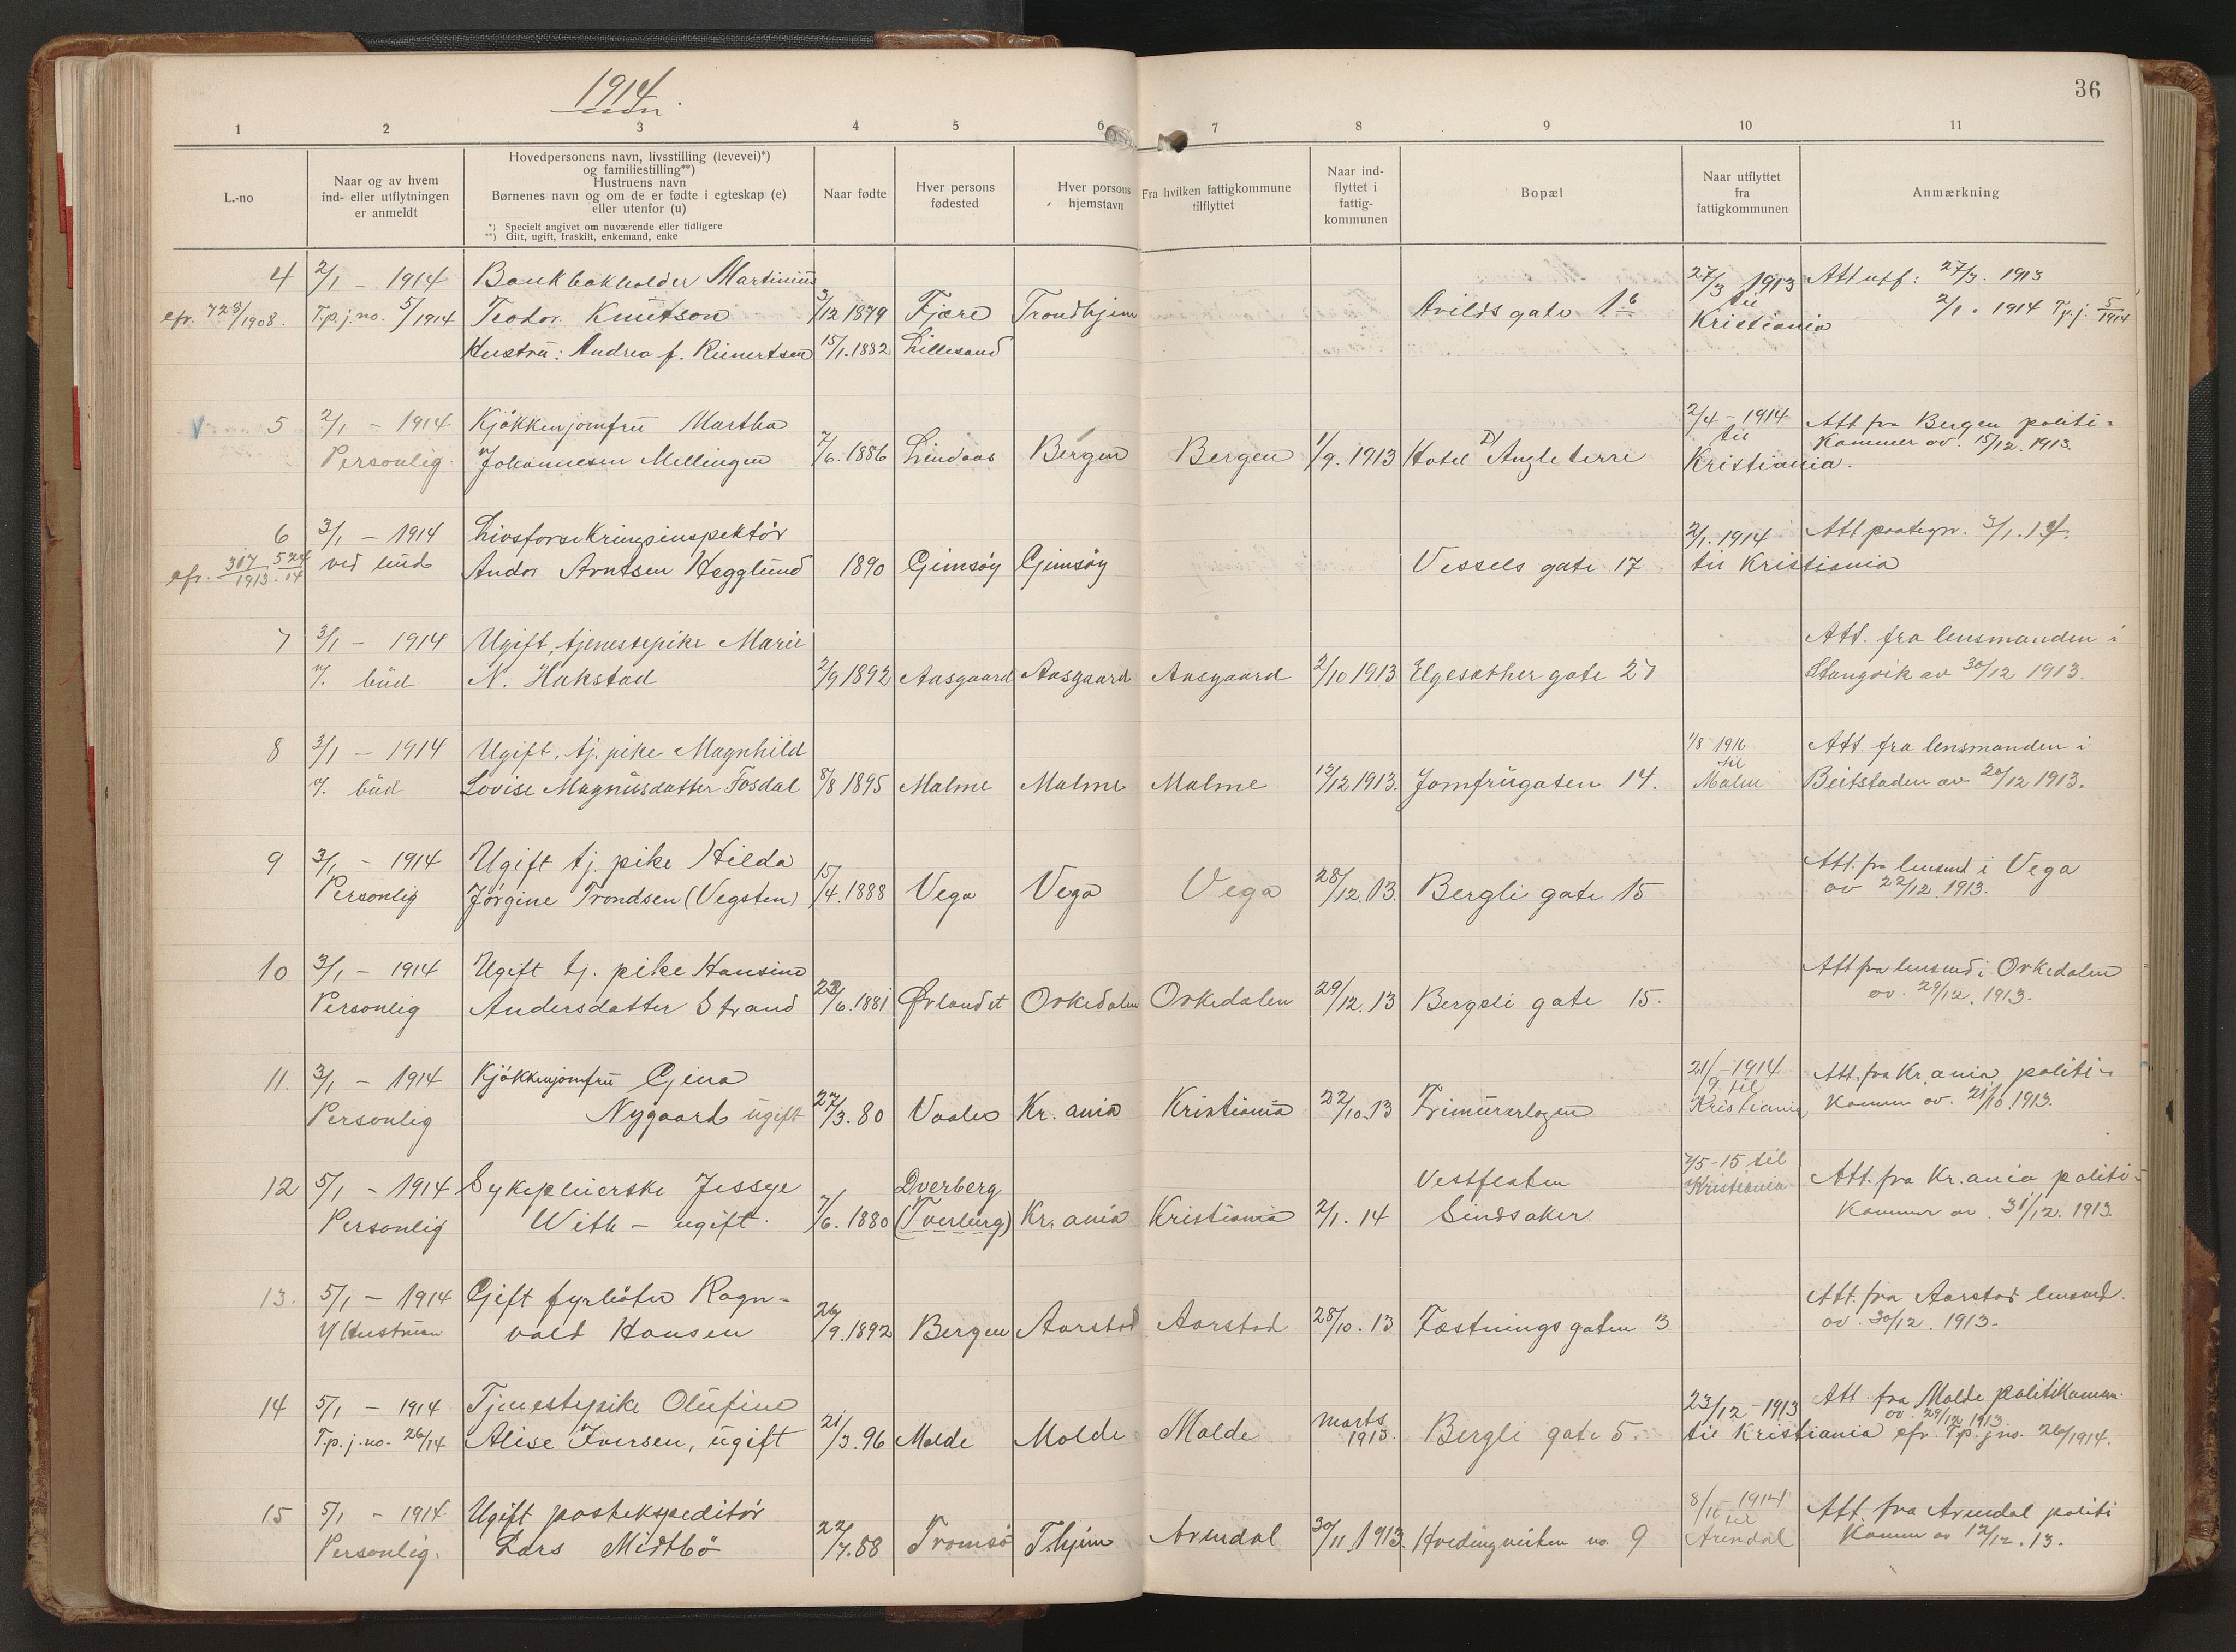 1914
36
1 2 3 4 5 6 7 8 9 10 11
L.-no
Naar og av hvem
ind- eller utflytningen
er anmeldt
Hovedpersonens navn, livsstilling (levevei)*)
og familiestilling**)
Hustruens navn
Børnenes navn og om de er fødte i egteskap (e)
eller utenfor (u)
*) Specielt angivet om nuværende eller tidligere
**) Gift, ugift, fraskilt, enkemand, enke
Naar fødte
Hver persons
fødested
Hver persons
hjemstavn
Fra hvilken fattigkommune
tilflyttet
Naar ind-
flyttet i
fattig-
kommunen
Bopæl
Naar utflyttet
fra
fattigkommunen
Anmærkning
4 2/1 - 1914 Bankbokholder Martinius 27/3 1913 Att utf: 27/3. 1913
cfr. 728/1908. T.p.j.no. 5/1914 Teodor Knutson 3/12 1879 Fjære Trondhjem Arilds gate 1b til Kristiania 2/1. 1914 T.p.j. 5/1914
Hustru: Andrea f. Reinertsen 15/1.1882 Lillesand
5 2/1 - 1914 Kjökkenjomfru Martha 2/4 - 1914 til Att fra Bergen politi-
Personlig Johannesen Mellingen 7/6.1886 Lindaas Bergen Bergen 1/9.1913 Hotel D'Angleterre Kristiania. kammer av 15/12.1913.
6 3/1 - 1914 Livsforsikringsinspektör 2/1.1914 Att paategn. 3/1.14.
cfr. 317/1913 524/14 ved bud Andor Arntsen Hegglund 1890 Gimsöy Gimsöy Vessels gate 17 til Kristiania
7 3/1 - 1914 Ugift, tjenestepike Marie Att. fra lensmanden i
v. bud N. Hakstad 2/9 1892 Aasgaard Aasgaard Aasgaard 2/10 1913 Elgesæther gate 27 Stangvik av 30/12 1913.
8 3/1 - 1914 Ugift, tj. pike Magnhild 1/8 1916 til Att. fra lensmanden i
v. bud Lovise Magnusdatter Fosdal 8/8 1895 Malme Malme Malme 12/12 1913. Jomfrugaten 14. Malm Beitstaden av 20/12 1913.
9 3/1 - 1914 Ugift tj. pike Hilda Att. fra lensmd i Vega
Personlig Jörgine Trondsen (Vegsten) 15/4.1888 Vega Vega Vega 28/12.13. Bergli gate 15 av 22/12.1913.
10 3/1 - 1914 Ugift tj. pike Hansine Att fra lensmd i Orkedalen
Personlig Andersdatter Strand 23/6.1881 Ørlandet Orkedalen Orkedalen 29/12.13 Bergsli gate 15. av. 29/12.1913.
11. 3/1 - 1914 Kjökkenjomfru Gina 21/9 - 1914 til Att. fra Kr.ania politi-
Personlig Nygaard ugift 27/3.80 Vaaler Kr.ania Kristiania 22/10.13 Frimurerlogen Kristiania kammer av. 21/10.1913.
12 5/1 - 1914 Sykepleierske Jessye Dverberg Vestfeaten 7/5-15 til Att. fra Kr.ania politi-
Personlig With - ugift. 7/6.1880 (Tverberg) Kr.ania Kristiania 2/1.14 Sindsaker Kristiania kammer av 31/12.1913.
13. 5/1 - 1914 Gift fyrböter Ragn- Att. fra Aarstad lensmd.
v/ Hustruen vald Hansen 26/9.1892 Bergen Aarstad Aarstad 28/10.13 Fæstningsgaten 3 av. 30/12.1913.
14 5/1 - 1914 Tjenestepike Olufine 23/12 - 1913 Att fra Molde politikamm.
av. 29/12 1913.
T.p.j.no. 26/14 Alise Iversen, ugift 21/3.96 Molde Molde Molde marts 1913. Bergli gate 5. til Kristiania cfr T.p.j.no. 26/1914.
15 5/1 - 1914 Ugift postekspeditör 8/11 - 1914 til Att. fra Arendal politi
Personlig. Lars Midtbö 22/7.88 Tromsö T.hjem Arendal 30/11 1913. Hvedingveiten no. 9 Arendal kammer av 12/12.13.